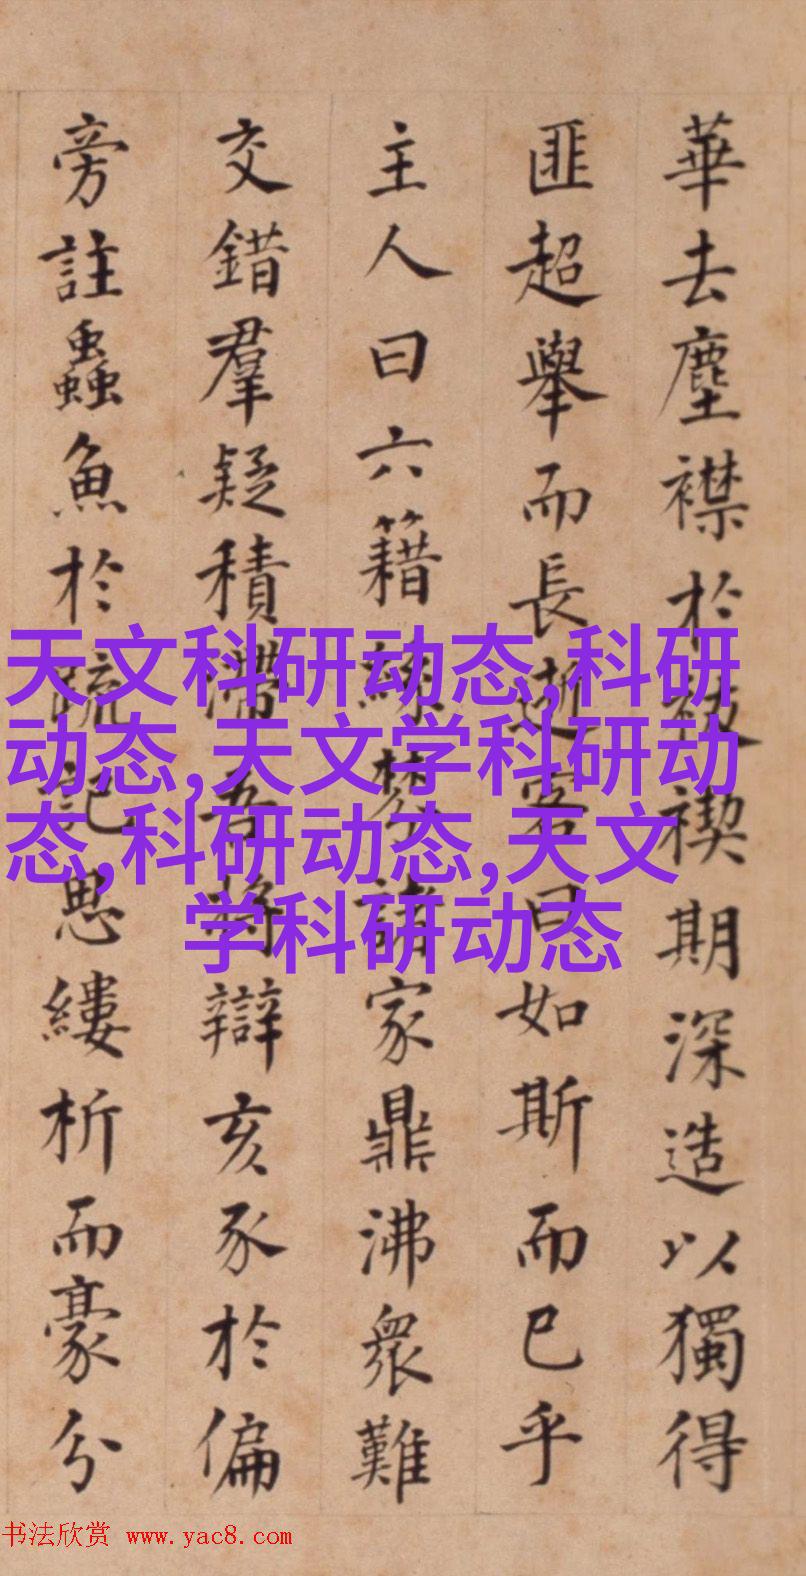 華去塵襟於被禊期深造以獨得
匪超舉而長逝客曰如斯而已乎
主人曰六籍絲棼諸家鼎沸衆難
交錯羣疑積滯吾將辯亥豕於偏
旁註蟲魚於疏記思縷析而豪分
天文科研动态,科研
动态,天文学科研动
态,科研动态,天文
学科研动态
书法欣赏 www.yac8.com